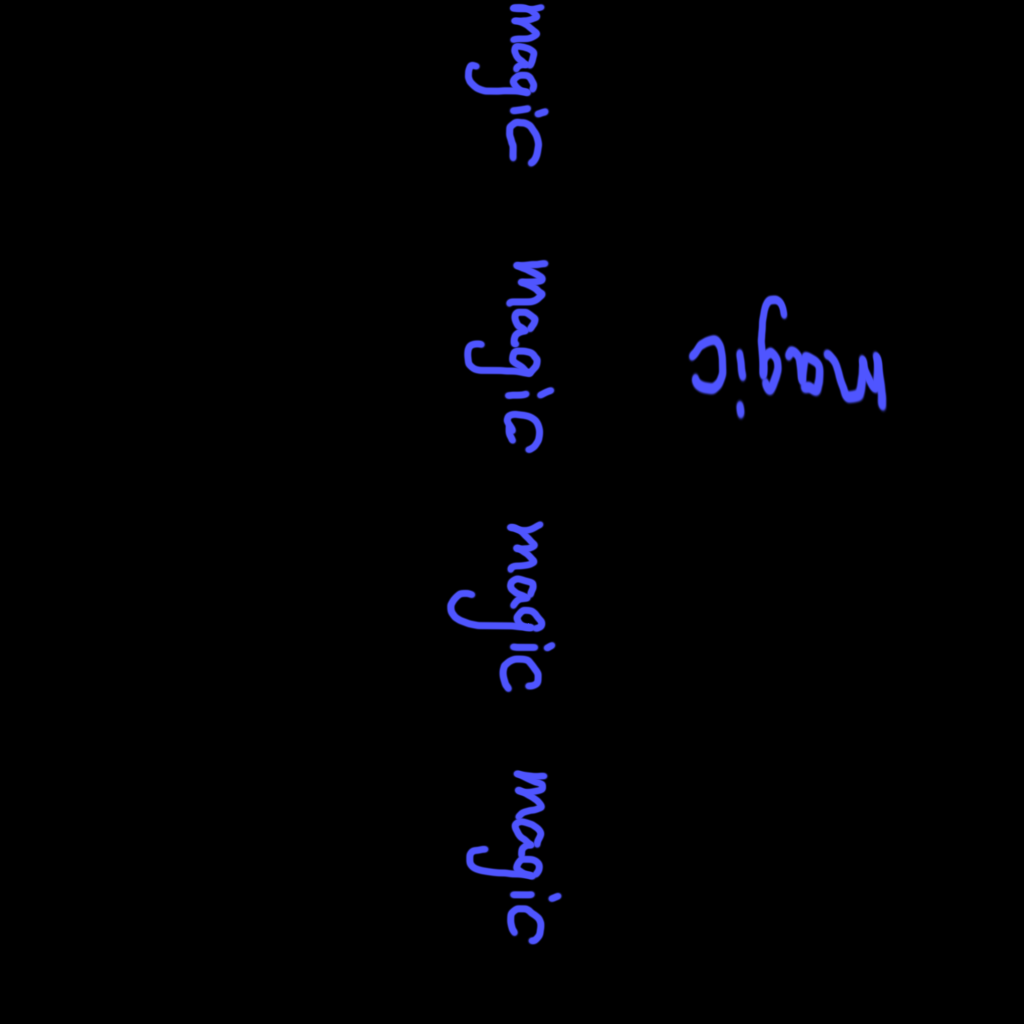 magic magic magic magic
magic